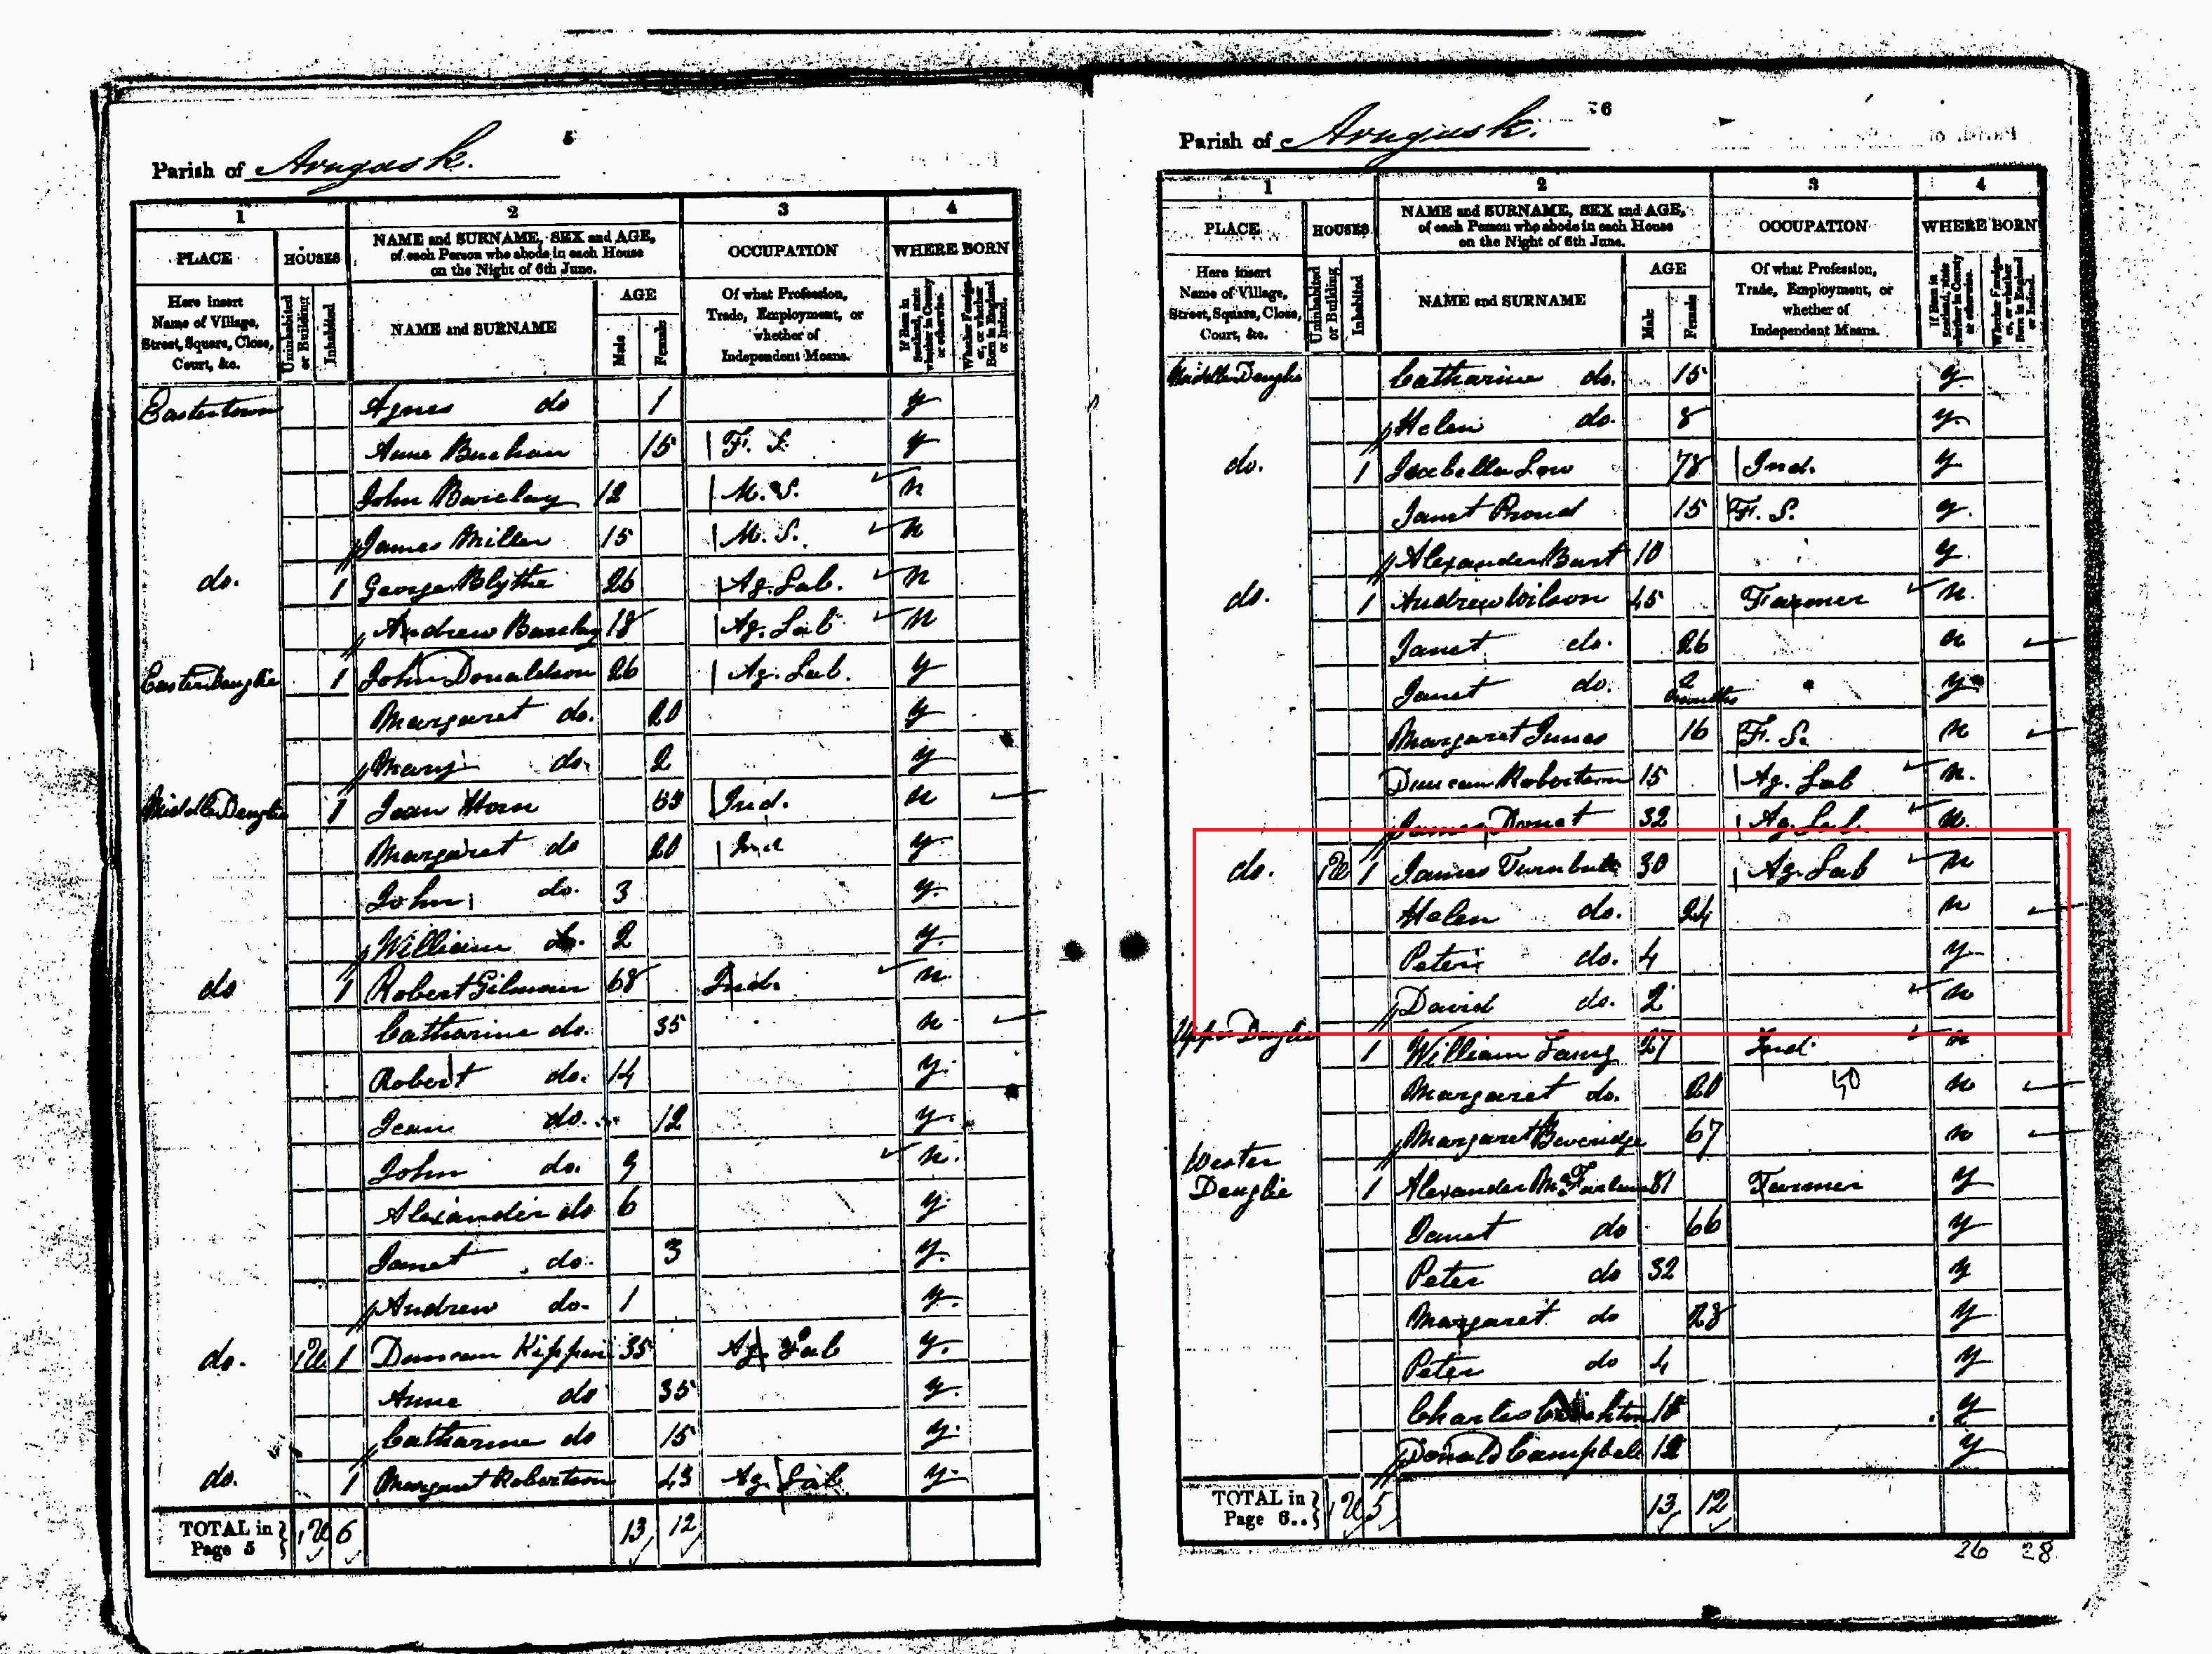 5
Parish of Arngask.
1 2 3 4
PLACE HOUSES NAME and SURNAME, SEX and AGE, of each Person who abode in each House on the Night of 6th June. OCCUPATION WHERE BORN
Here insert Name of Village, Street, Square, Close, Court, &c. Uninhabited or Building Inhabited NAME and SURNAME AGE Male Female Of what Profession, Trade, Employment, or whether of Independent Means. If Born in Scotland, state whether in County or otherwise. Whether Foreigner, or whether Born in England or Ireland.
Eastertown Agnes do 1 y
Anne Buchan 15 F. S. y
John Barclay 12 M. S. n
James Miller 15 M. S. n
do. 1 George Blythe 26 Ag. Lab. n
Andrew Barclay 18 Ag. Lab n
Easter Deuglie 1 John Donaldson 26 Ag. Lab. y
Margaret do. 20 y
Mary do. 2 y
Middle Deuglie 1 Jean Horn 53 Ind. n
Margaret do 20 Ind y
John do. 3 y.
William do. 2 y.
do 1 Robert Gilmour 68 Ind. n
Catharine do. 35 n
Robert do. 14 y.
Jean do. 12 y.
John do. 9 n.
Alexander do 6 y
Janet do. 3 y.
Andrew do. 1 y.
do. 1U 1 Duncan 35 Ag. Lab y.
Anne do 35 y.
Catharine do 15 y.
do. 1 Margaret Robertson 43 Ag. Lab. y
TOTAL in Page 5 } 1U 6 13 12
6
Parish of Arngask.
1 2 3 4
PLACE HOUSES NAME and SURNAME, SEX and AGE, of each Person who abode in each House on the Night of 6th June. OCCUPATION WHERE BORN
Here insert Name of Village, Street, Square, Close, Court, &c. Uninhabited or Building Inhabited NAME and SURNAME AGE Male Female Of what Profession, Trade, Employment, or whether of Independent Means. If Born in Scotland, state whether in County or otherwise. Whether Foreigner, or whether Born in England or Ireland.
Middle Deuglie Catharine do. 15 y
Helen do. 8 y.
do. 1 Isabella Low 78 Ind. y
Janet Proud 15 F. S. y.
Alexander Burt 10 y.
do. 1 Andrew Wilson 45 Farmer n.
Janet do. 26 n
Janet do. 2 months y
Margaret Innes 16 F. S. n
Duncan Robertson 15 Ag. Lab n.
James 32 Ag. Lab. n.
do. 1U 1 James Turnbull 30 Ag. Lab n
Helen do. 24 n
Peter do. 4 y
David do. 2 n
Upper Deuglie 1 William Laing 27 Ind. n
Margaret do. 20 n
Margaret Beveridge 67 n
Wester
Deuglie 1 Alexander McFarlane 81 Farmer y
Janet do 66 y
Peter do 32 y
Margaret do 28 y
Peter do 4 y
Charles Crichton y
Donald Campbell 12 y
TOTAL in Page 6.. } 1U 5 13 12
26 28